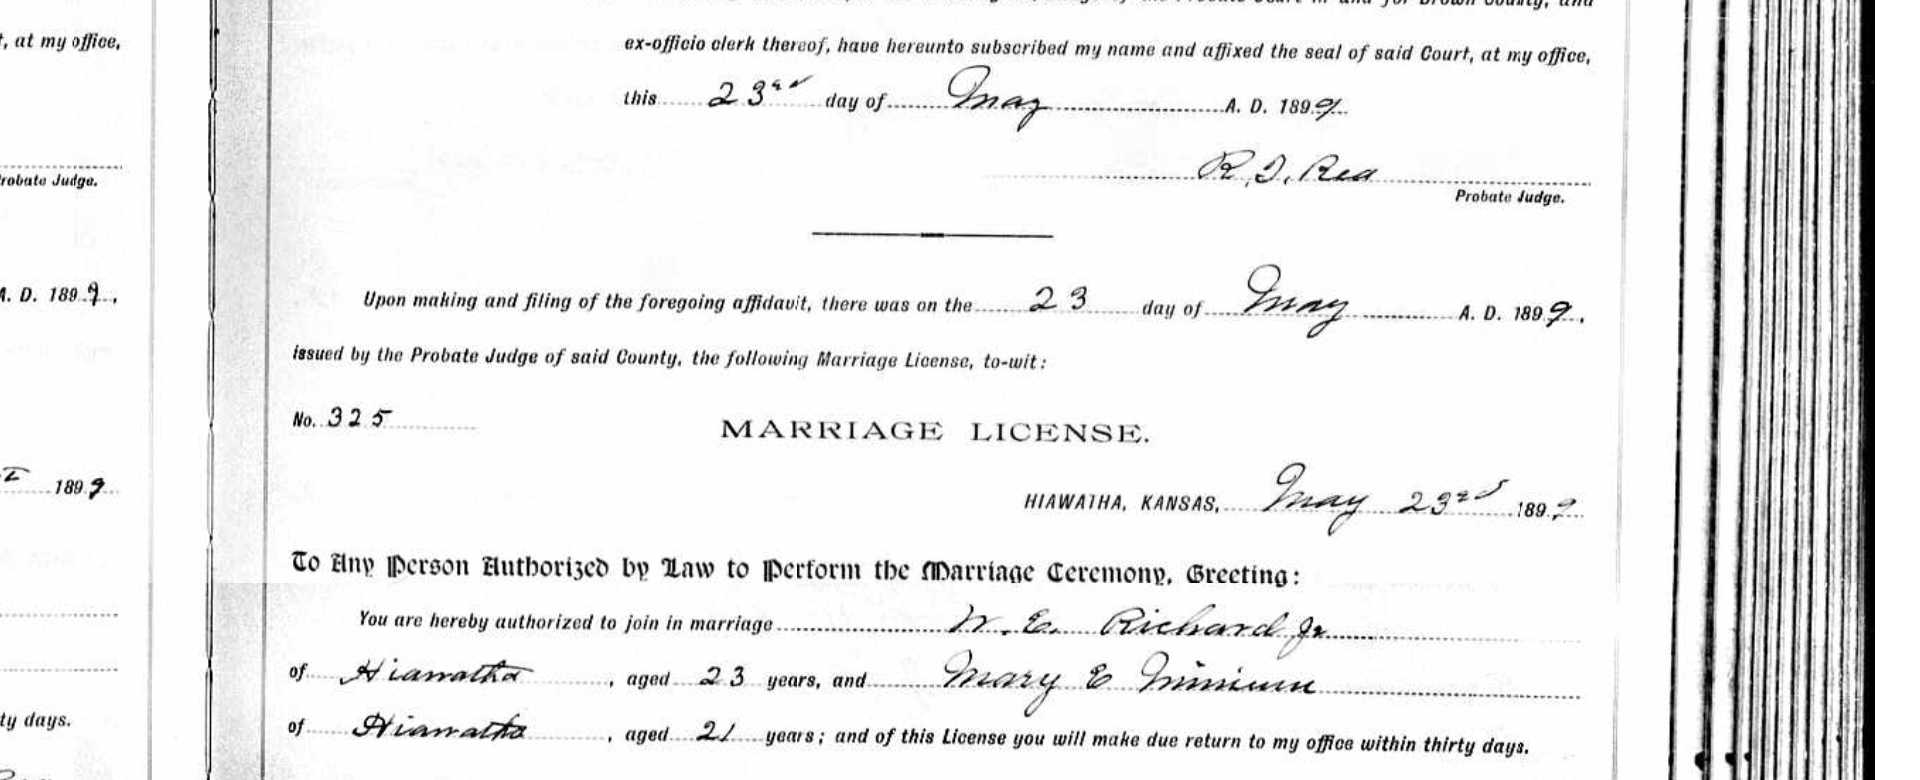 t, at my office,
robate Judge.
A. D. 1899,
1899
ty days.
ex-officio clerk thereof, have hereunto subscribed my name and affixed the seal of said Court, at my office,
this 23rd day of May A. D. 1899
R. T. Rea
Probate Judge.
Upon making and filing of the foregoing affidavit, there was on the 23 day of May A. D. 1899,
issued by the Probate Judge of said County, the following Marriage License, to-wit:
No. 325
MARRIAGE LICENSE.
HIAWATHA, KANSAS, May 23rd 1899
To Any Person Authorized by Law to Perform the Marriage Ceremony, Greeting:
You are hereby authorized to join in marriage W. E. Richard Jr.
of Hiawatha, aged 23 years, and Mary E Minium
of Hiawatha, aged 21 years; and of this License you will make due return to my office within thirty days.